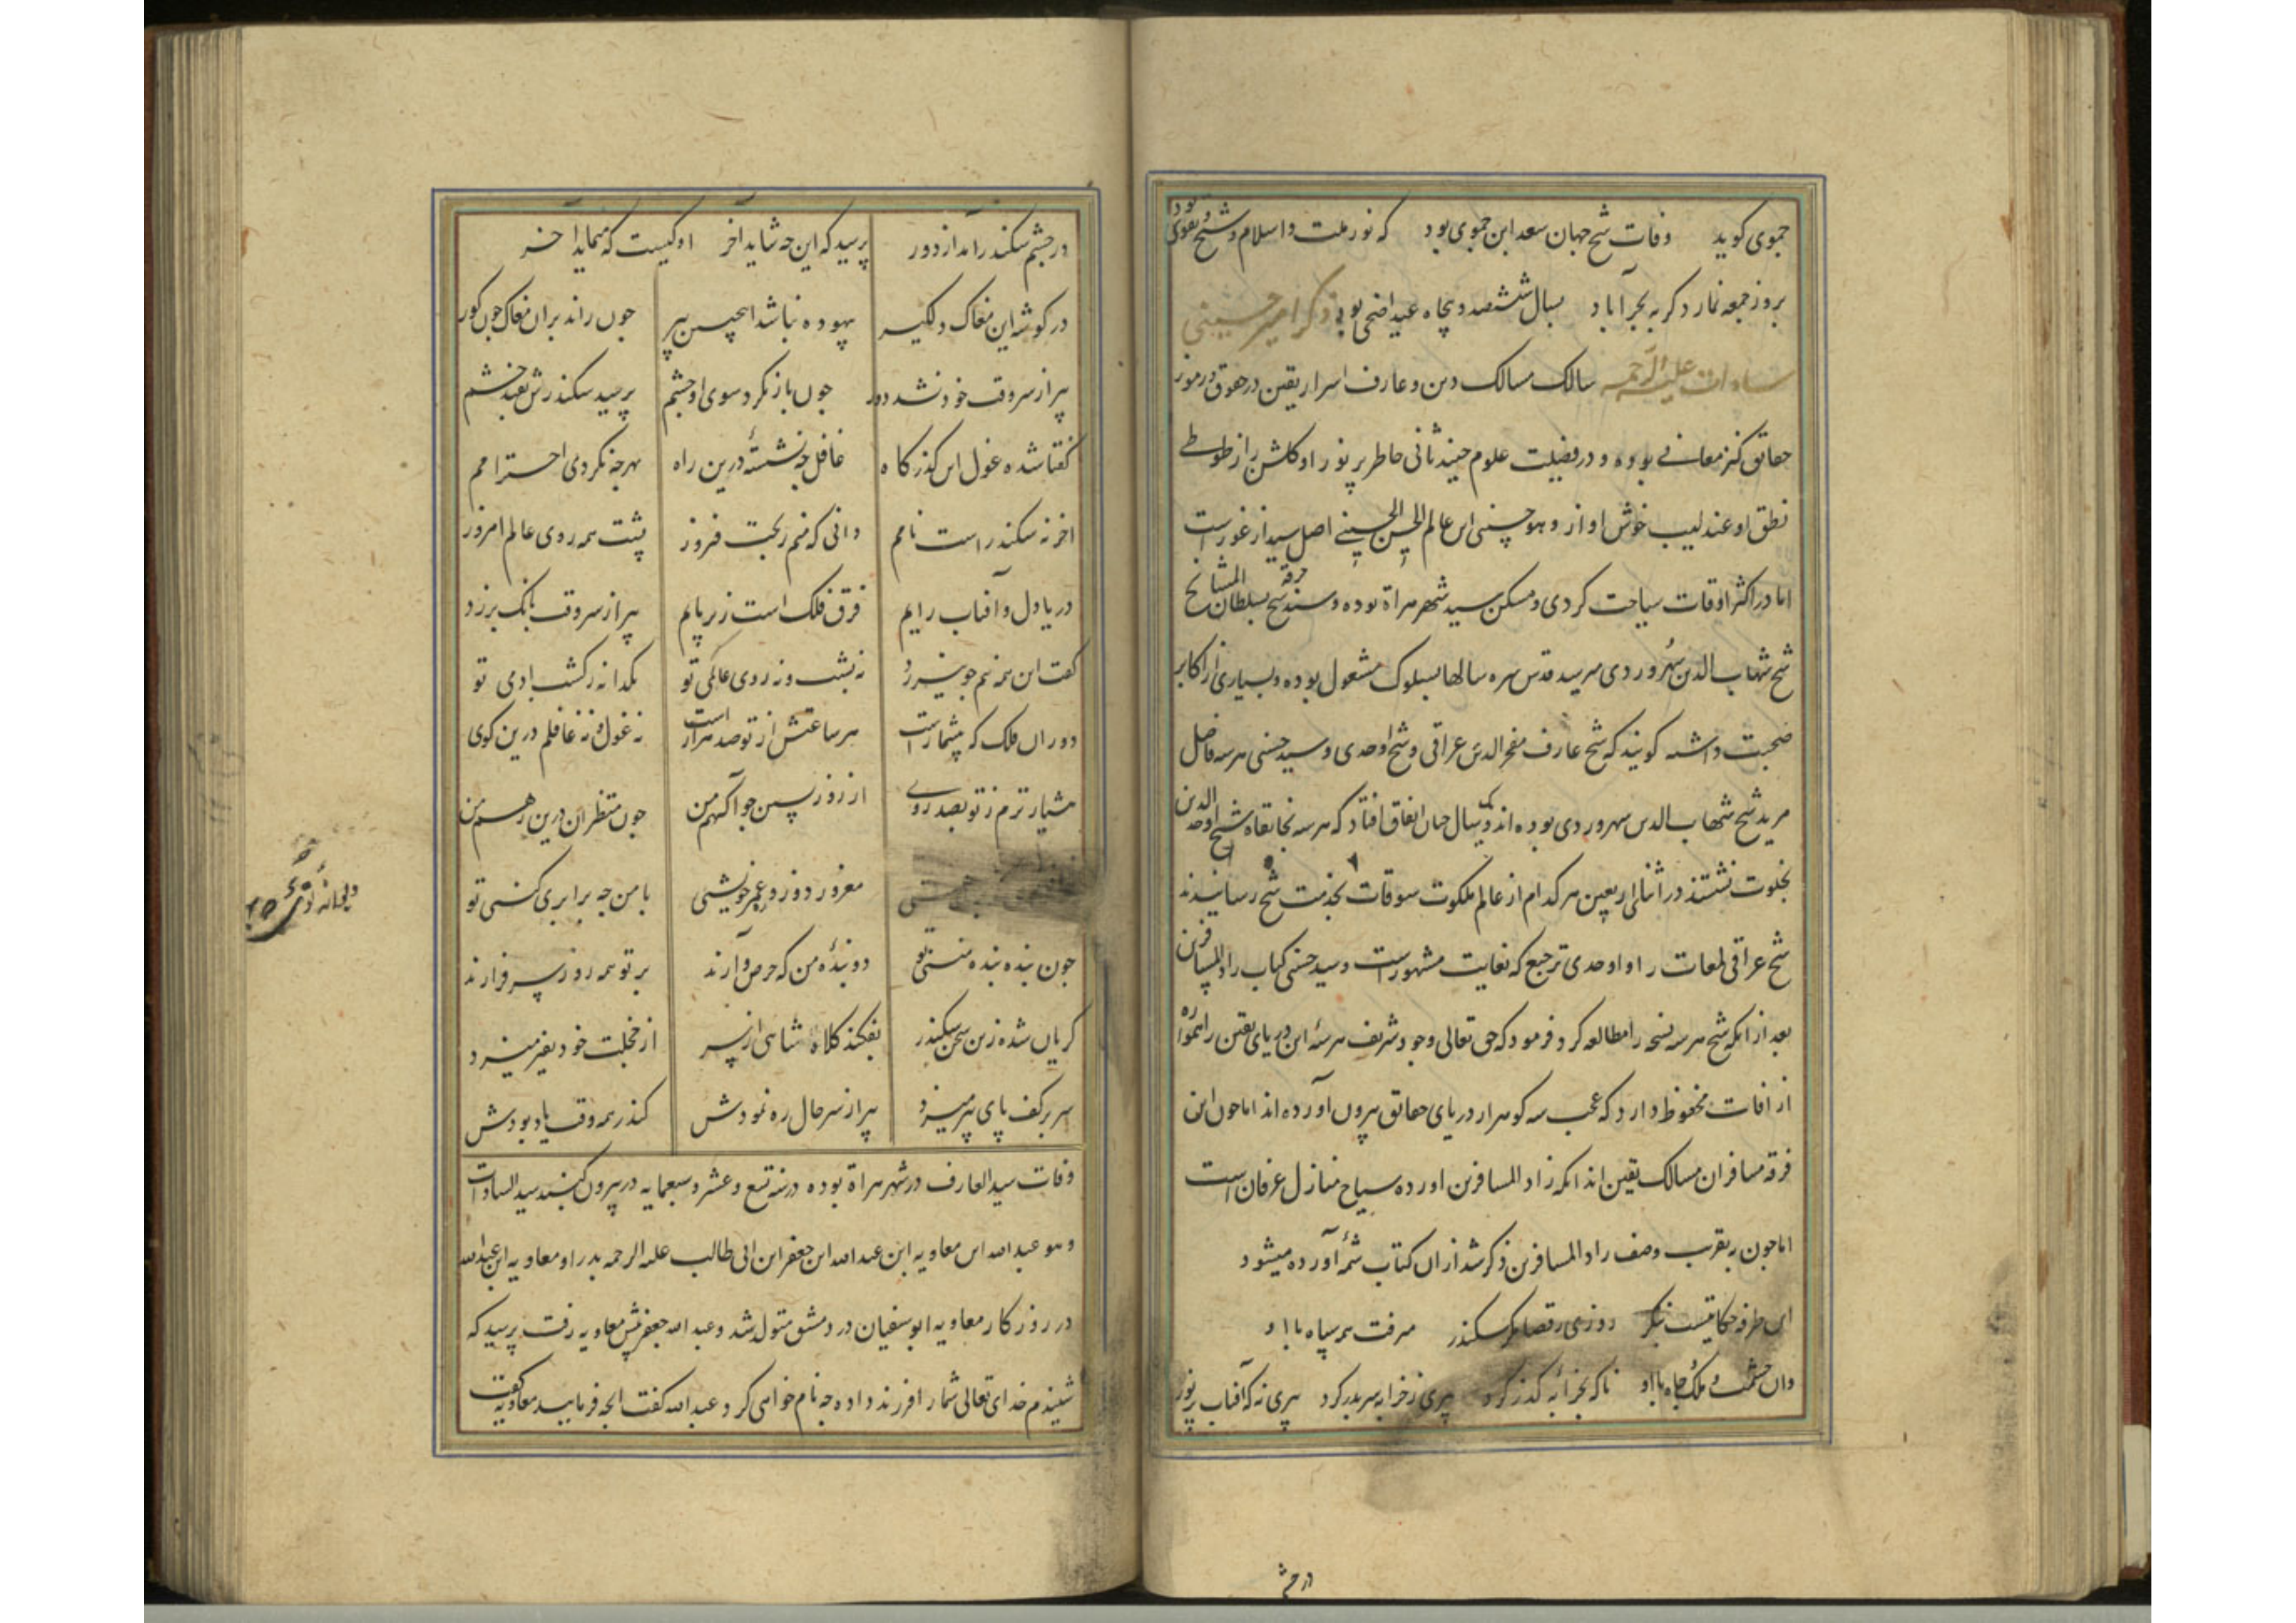 حموی کوید وفات شیخ جهان سعد ابن حموی بود که نور ملت و اسلام و شیخ تقوی بود
بروز جمعه نماز دکر به بحر آباد بسال ششصد و پنجاه عید اضحی بود ذکر امیر حسینی
سادات علیه الرحمه سالک مسالک دین و عارف اسرار یقین در حقوق و رموز
حقایق کنز معانی بوده و در فضیلت علوم جنید ثانی خاطر پر نور او کلشن راز طوطی
نطق او عندلیب خوش اواز و هو حسینی ابن عالم الحسن الحسینی اصل سید از غورست
اما در اکثر اوقات سیاحت کردی و مسکن سید شهر هراة بوده و سند خرقه شیخ بسلطان المشایخ
شیخ شهاب الدین سهروردی میرسد قدس سره سالها بسلوک مشغول بوده و بسیاری از اکابر
صحبت داشته کویند که شیخ عارف فخر الدین عراقی و شیخ اوحدی و سید حسینی هر سه فاضل
مرید شیخ شهاب الدین سهروردی بوده اند و یکسال چنان اتفاق افتاد که هر سه بخانقاه شیخ اوحد الدین
بخلوت نشستند در اثنای اربعین هر کدام از عالم ملکوت سوقات بخدمت شیخ رسانیدند
شیخ عراقی لمعات را و اوحدی ترجیع که بغایت مشهورست و سید حسینی کتاب زاد المسافرین
بعد از انکه شیخ هر سه نسخه را مطالعه کرد فرمود که حق تعالی وجود شریف هر سهٔ این دریای یقین را همواره
از افات محفوظ دارد که عجب سه کوهر از دریای حقایق بیرون آورده اند اما چون این
فرقه مسافران مسالک یقین اند انکه زاد المسافرین اورده سیاح منازل عرفان است
اما چون به تقریب وصف زاد المسافرین ذکر شد از ان کتاب شمهٔ آورده میشود
این طرفه حکایتیست بنکر روزی رقضا مکر سکندر میرفت همه سپاه با او
وان حشمت و ملک و جاه با او ناکه بخرابهٔ کذر کرد پیری ز خرابه سر بدر کرد پیری نه که آفتاب پر نور
در چشم
در چشم سکندر آمد از دور پرسید که این چه شاید آخر او کیست که مینماید آخر
در کوشه این مغاک دلکیر بیهوده نباشد اینچنین پیر چون راند بران مغاک چون کور
پیر از سر وقت خود نشد دور چون باز نکرد سوی او چشم پرسید سکندرش بصد خشم
کفتا شده غول این کذرکاه غافل چه نشستهٔ درین راه بهر چه نکردی احترامم
اخر نه سکندر است نامم دانی که منم بخت فروز پشت همه روی عالم امروز
دریا دل و آفتاب رایم فرق فلک است زیر پایم پیر از سر وقت بانک برزد
کفت این همه نیم جو نیرزد نه پشت و نه روی عالمی تو یکدانه ز کشت ادمی تو
دوران فلک که بیشمارست هر ساعتش از تو صد هزارست نه غول و نه غافلم درین کوی
هشیار ترم ز تو بصد روی از روز پسین چو آکهم من چون منتظران درین رهم من
مغرور دو روزه عمر خویشی با من چه برابری کنی تو
چون بنده بندهٔ منی تو دو بندهٔ من که حرص و آزند بر تو همه روز سر فرازند
کریان شده زین سخن سکندر بفکند کلاه شاهی از سر از خجلت خود بغیر میزد
سر بر کف پای پیر میزد پیر از سر حال ره نمودش کندر همه وقت یاد بودش
وفات سید العارف در شهر هراة بوده در سنه تسع و عشر و سبعمایه در بیرون کنبد سید السادات
و هو عبد الله ابن معاویه ابن عبد الله ابن جعفر ابن ابی طالب علیه الرحمه پدر او معاویه ابن عبد الله
در روزکار معاویه ابو سفیان در دمشق متولد شد و عبد الله جعفر پیش معاویه رفت پرسید که
شنیدم خدای تعالی شما را فرزند داده چه نام خواهی کرد عبد الله کفت انچه فرمایید معاویه کفت